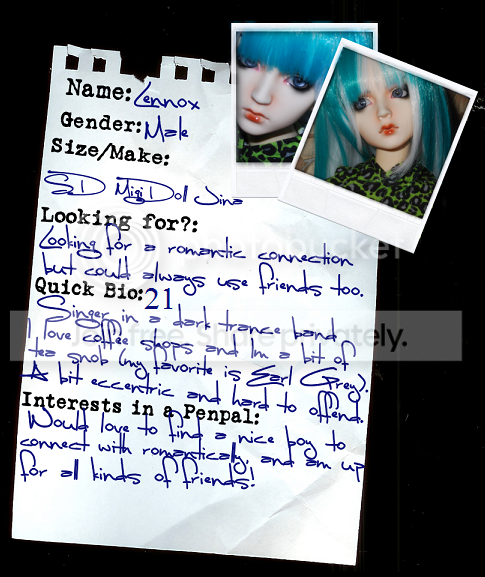 Name: Lennox
Gender: Male
Size/Make:
SD Migi Doll Jina
Looking for?:
Looking for a romantic connection
but could always use friends too.
Quick Bio: 21
Singer in a dark trance band
I love coffee shops and Im a bit of
tea snob (my favorite is Earl Grey).
A bit eccentric and hard to offend.
Interests in a Penpal:
Would love to find a nice boy to
connect with romantically, and am up
for all kinds of friends!